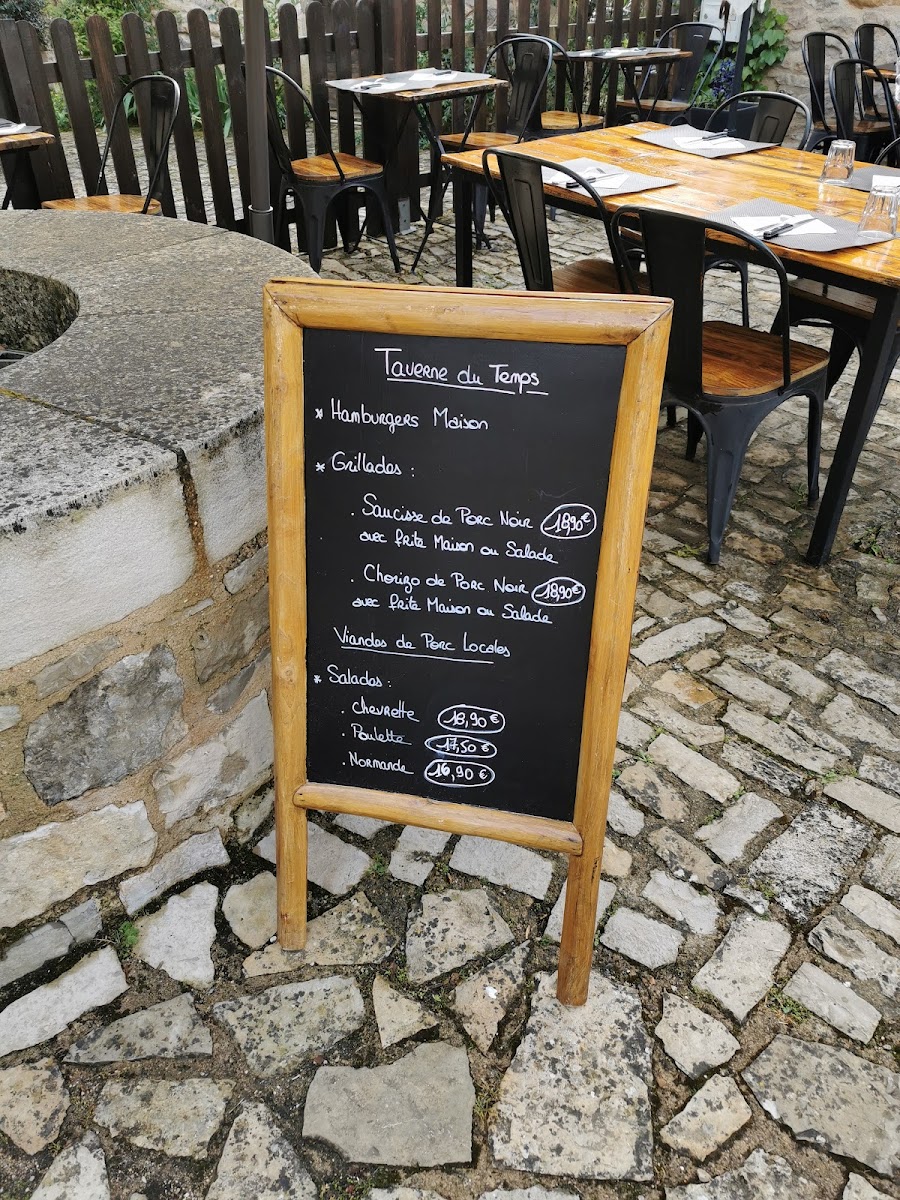 Taverne du Temps
* Hamburgers Maison
* Grillades :
. Saucisse de Porc Noir 18,90€
avec frite Maison ou Salade
. Chorizo de Porc Noir 18,90€
avec frite Maison ou Salade
Viandes de Porc Locales
* Salades :
. Chevrette 18,90 €
. Poulette 17,50 €
. Normande 16,90 €